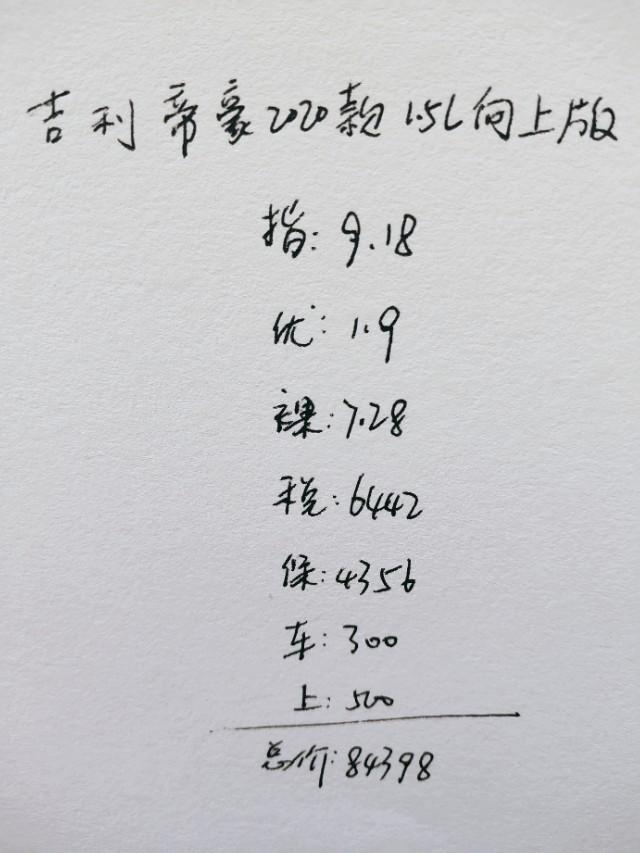 吉利帝豪2020款1.5L向上版
指:9.18
优:1.9
裸:7.28
税:6442
保:4356
车:300
上:500
总价:84398